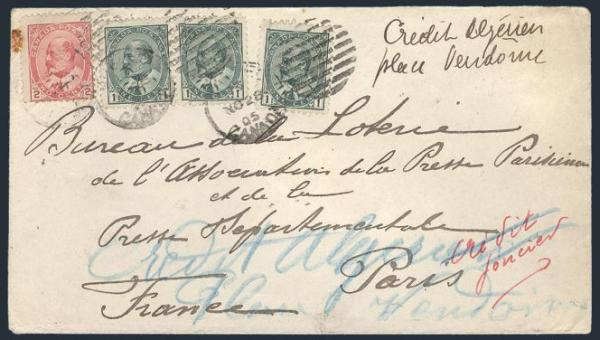 CANADA POSTAGE
2 2
CANADA POSTAGE
1 1
CANADA POSTAGE
1 1
CANADA POSTAGE
1 1
NO 20
05
CANADA
Crédit Algérien
place Vendome
Bureau de la Loterie
de l'Association de la Presse Parisienne
et de la
Presse Departementale
Paris
France
Crédit Algerien
Place Vendome
Crédit
foncier